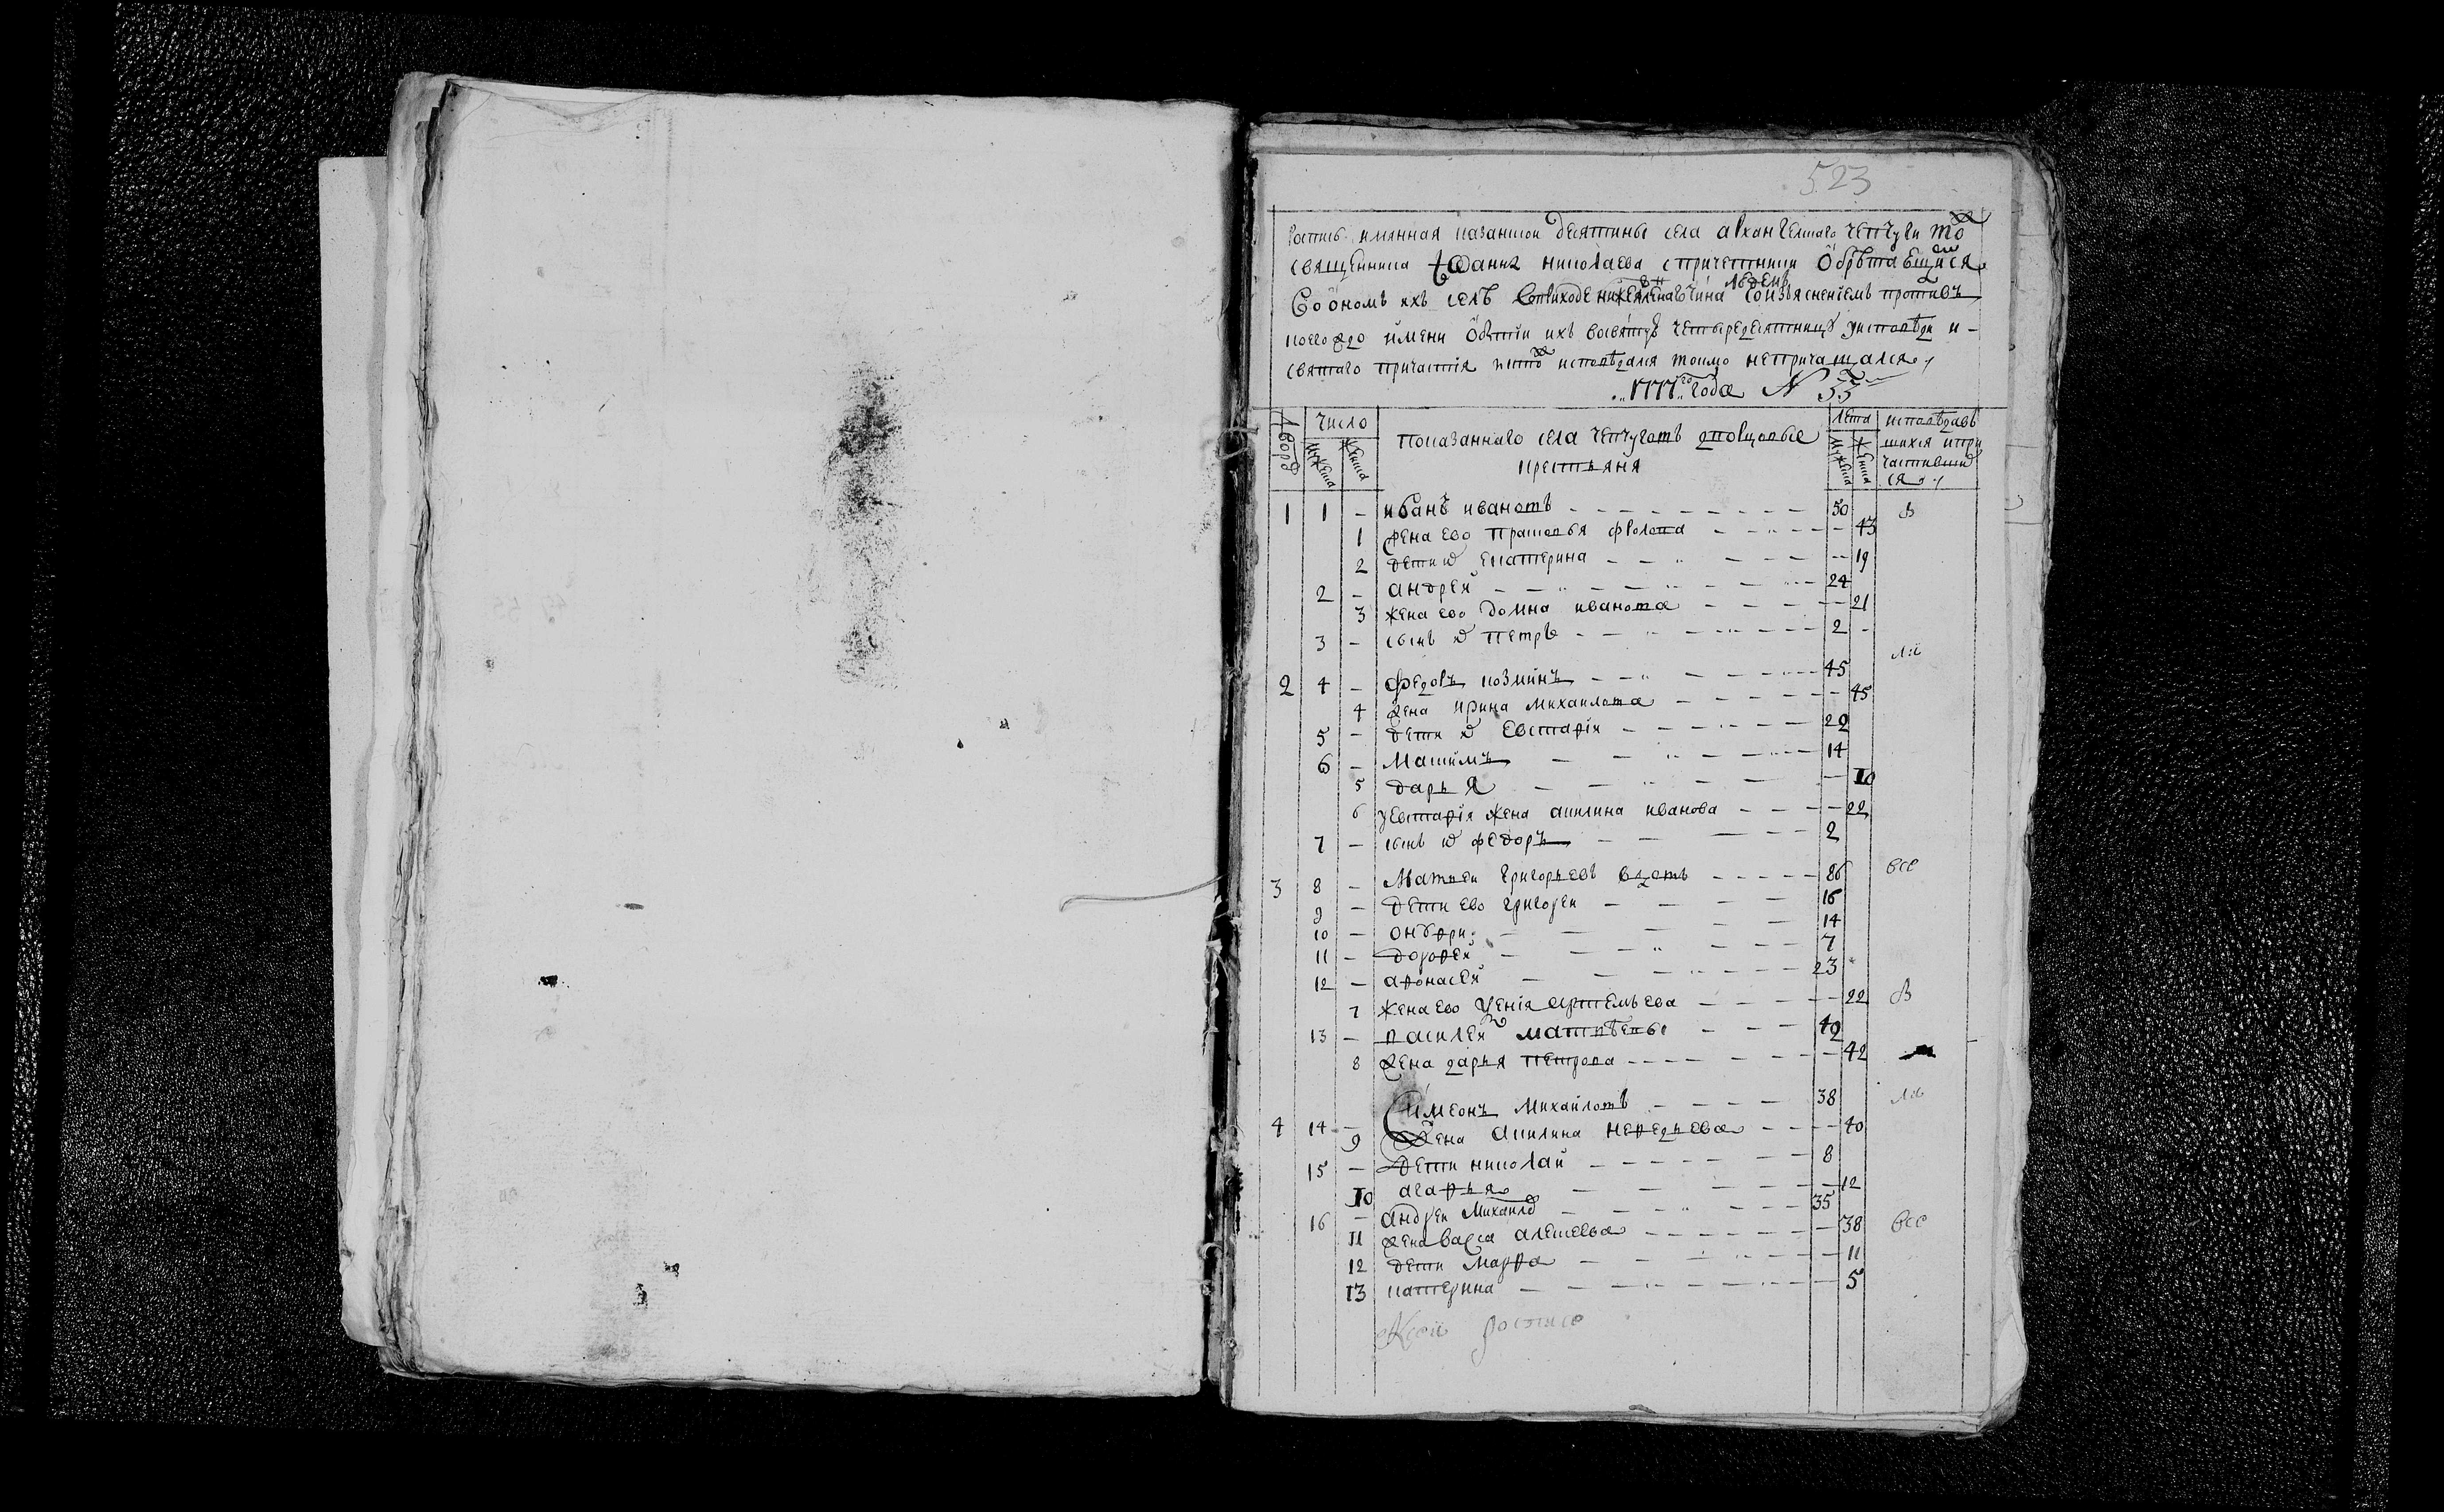 523
имянная казанской десятины села архангелскаго чепчуги то
священника Иоанна николаева спричетники обретаещихся
Во оном их селе соизъяснениемъ противъ
коегождо имени о бытии ихъ восвятую четыредесятницу уисповеди и
святаго причастия исповедался токмо непричащался
1777 года N 55
Дворов
Число
Мужеска
Женска
показаннаго села чепчугов
крестьяня
Лета
Мужеска
Женска
исповедав
шихся и при
частивши
ся
1 1 - иванъ ивановъ 50
1 жена ево прасковья фролова 43
2 дети их екатерина 19
2 - андрей 24
3 жена ево домна иванова 21
3 - сынъ их петръ 2
2 4 - федоръ козминъ 45
4 жена ирина михаилова 45
5 - дети их евстафии 22
6 - Макимъ 14
5 дарья 10
6 уевстафия жена акилина иванова 22
7 - сынъ их федоръ 2
3 8 - Матвеи григорьевъ вдовъ 86 все
9 - дети ево григореи 16
10 - 14
11 - дорофеи 7
12 - афонасеи 23
7 жена ево артемьева 22
13 - василеи матвеевъ 42
8 жена дарья петрова 42
4 14 - Симеонъ Михаиловъ 38
9 Жена Акилина нефедьева 40
15 - дети николаи 8
10 агафья 12
16 - андреи михаило 35
11 жена васса алексеева 38 все
12 дети марфа 11
13 катерина 5